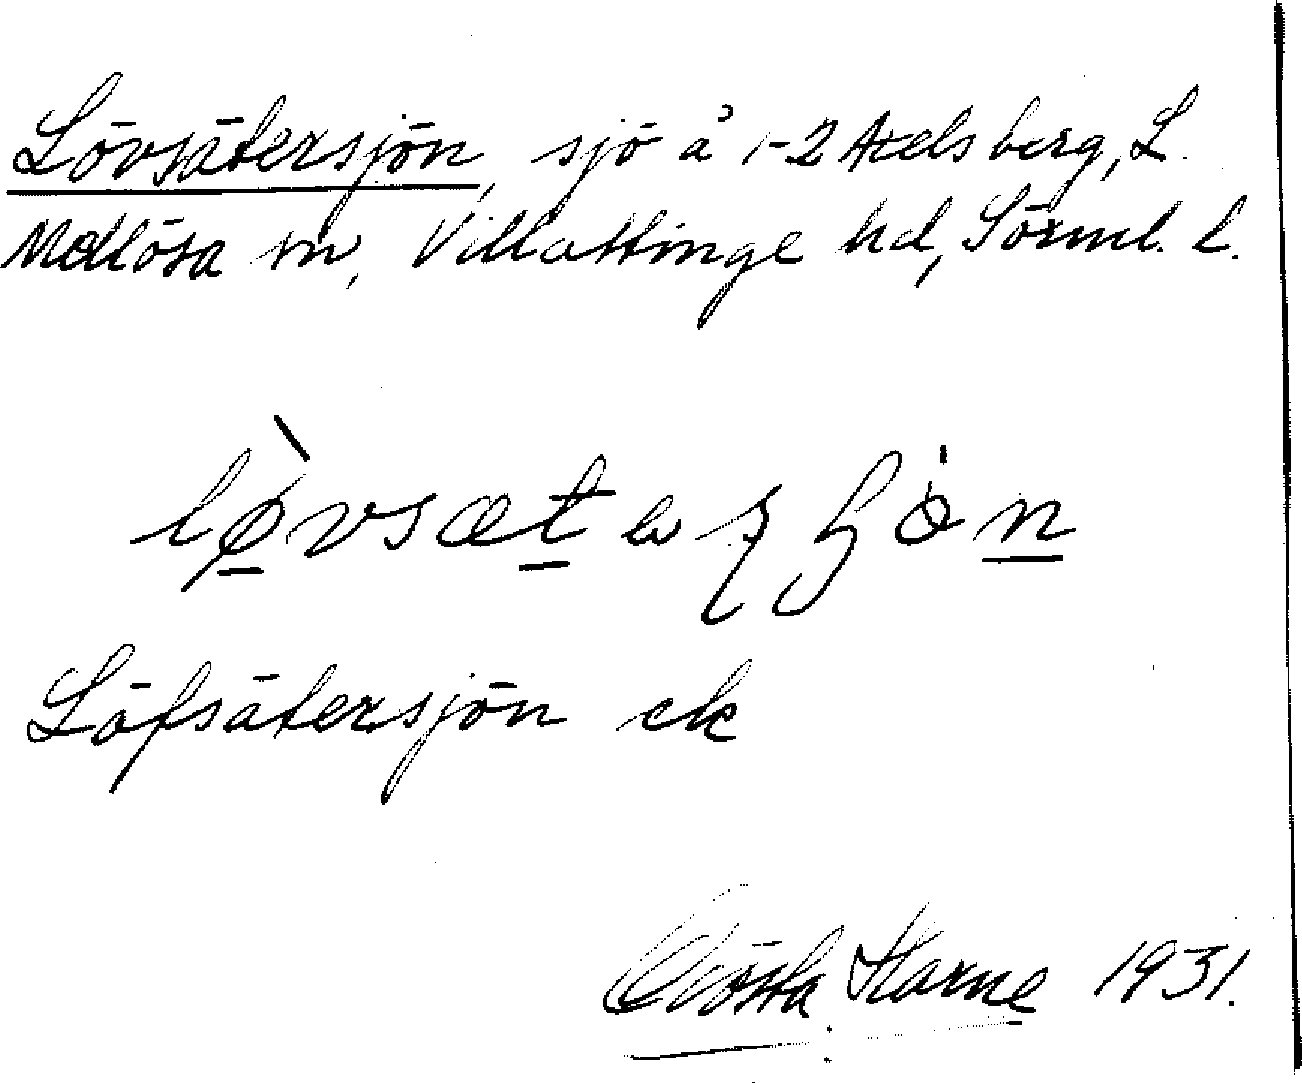 Lövsätersjön, sjö å 1-2 Axelsberg, L.
Mellösa sn, Villåttinge hd, Sörml. l.
Löfsätersjön ek
Gösta Harne 1931.